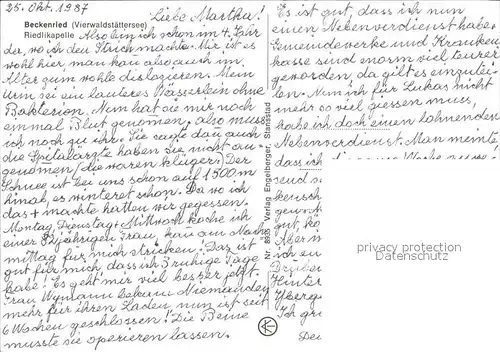 25. Okt. 1987
Beckenried (Vierwaldstättersee)
Riedlikapelle
Liebe Martha!
Also bin ich schon im 4. Jahr
da, wo ich den Strich machte. Mir ist es
wohl hier, man kan also auch im
Alter zum wohle dislozieren. Mein
Urin sei ein lauteres Wässerlein ohne
Bakterien. Nun hat sie mir noch
einmal Blut genomen. also muss
ich noch zu ihr. Sie sagte dan auch
die Spitalärzte haben Sie nicht an-
genomen/die waren klüger. Der
Schnee ist bei uns schon auf 1500 m
hinab, es winteret schon. Da wo ich
das + machte hatten wir gegessen.
Montag, Dienstag + Mittwoch koche ich
einer 82jährigen Frau, kan am Nach-
mittag für mich stricken. Das ist
gut für mich, dass ich 3 ruhige Tage
habe. Es geht mir viel besser jetzt.
Frau Wymann bekam Niemanden
mehr für ihren Laden nun ist seit
6 Wochen geschlossen! Die Beine
musste sie operieren lassen.
Nr. 8935 Verlag Engelberger, Stansstad
Es ist gut, dass ich nun
einen Nebenverdienst haben
Gemeindewerke und Kranken
kasse sind enorm viel teurer
geworden, da gilt es einzutei-
len. Nun ich für Lukas nicht
mehr so viel giessen muss,
habe ich doch einen lohnenden
Nebenverdienst. Man meinte,
dass ich
privacy protection
Datenschutz
Ich gr